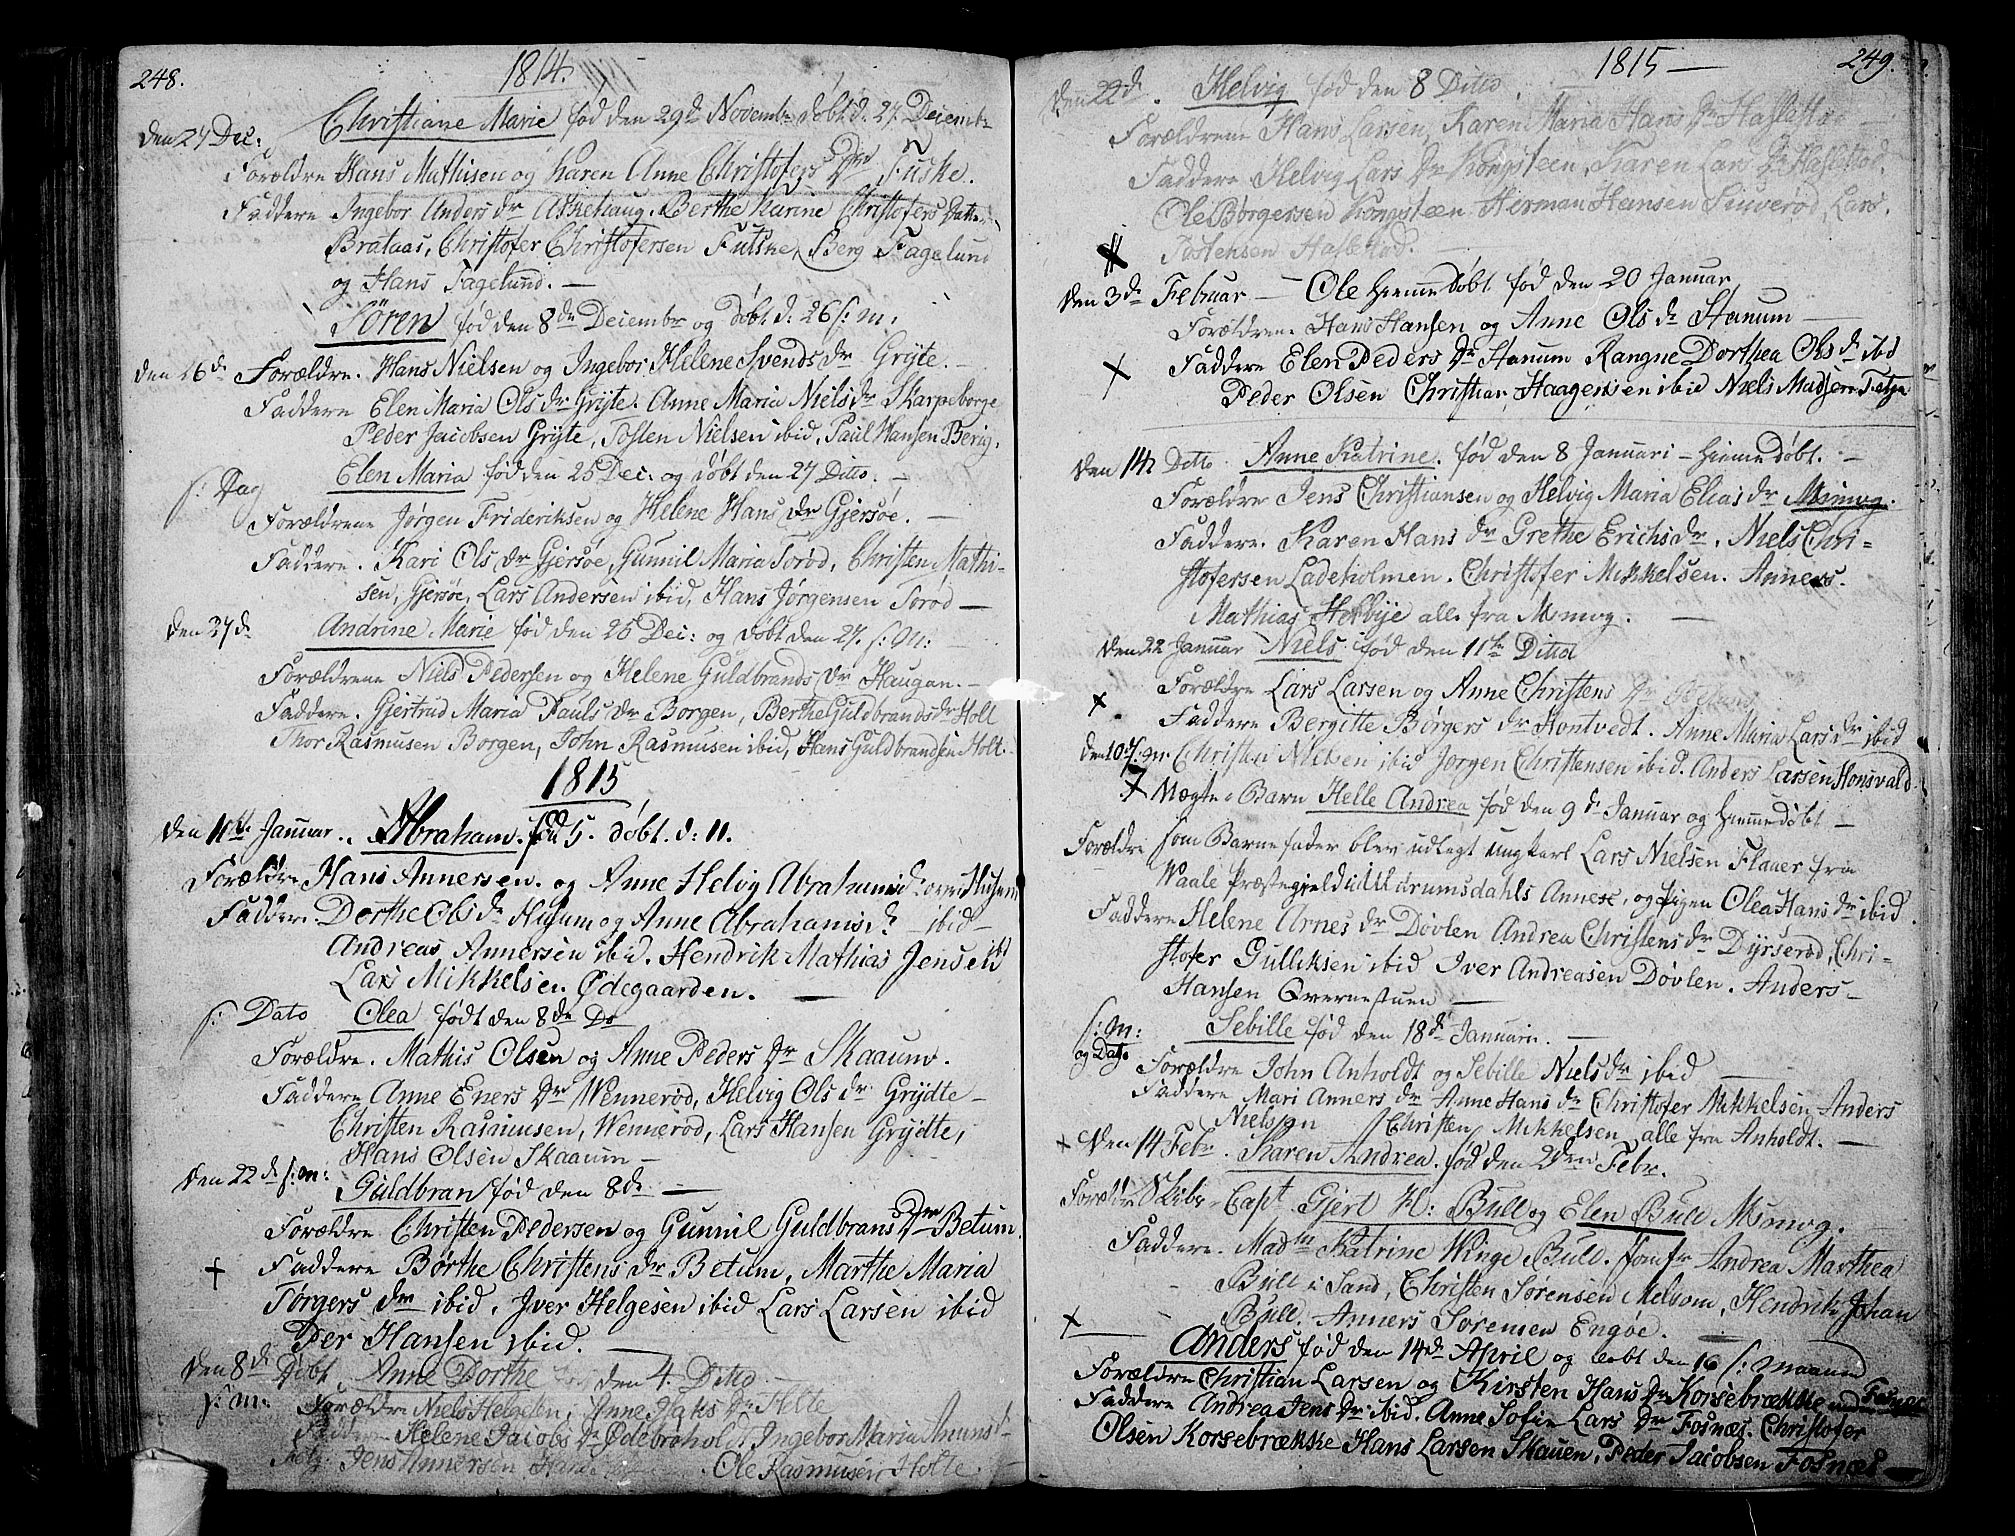 248.
1814.
den 27 Dec: Christiane Marie fød den 29d Novembr døbt d. 27 Decembr
Forældre Hans Mathisen og Karen Anne Christofers Dr Fuske.
Faddere Ingebor Anders dr Askehaug. Berthe Karine Christofers Datter
Brataas, Christofer Christofersen Futske, Berg Fagelund
og Hans Fagelund. —
Søren fød den 8de Decembr og døbt d. 26 s: m:
den 26d Forældre. Hans Nielsen og Ingebor Helene Svends dr Gryte. —
Faddere Elen Maria Ols dr Gryte. Anne Maria Niels dr Skarpeborge
Peder Jacobsen Gryte, Tosten Nielsen ibid, Paul Hansen Berig.
s: Dag Elen Maria fød den 25 Dec: og døbt den 27 Ditto. —
Forældrene Jørgen Frideriksen og Helene Hans dr Gjersøe. —
Faddere. Kari Ols dr Gjersøe, Gunnil Maria Torød, Christen Mathi-
sen, Gjersøe, Lars Andersen ibid, Hans Jørgensen Torød —
den 27d. Andrine Marie fød den 25 Dec: og døbt den 27. s: m: —
Forældrene Niels Pedersen og Helene Guldbrands dr Haugan. —
Faddere. Gjertrud Maria Pauls dr Borgen, Berthe Guldbrands dr Holt
Thor Rasmusen Borgen, John Rasmusen ibid, Hans Guldbrandsen Holt. —
1815
den 11te Januar.. Abraham. fød 5. døbt. d: 11.
Forældre Hans Annersen. og Anne Helvig Abrahams d:
Faddere. Dorthe Ols dr Husum og Anne Abrahams d. — ibid —
Andreas Annersen ibid. Hendrik Mathias Jensen ibd
Lars Mikkelsen. Ødegaarden. —
s: Dato Olea født den 8de Do
Forældre. Mathis Olsen og Anne Peders dr Skaaum.
Faddere Anne Eners dr Wennerød, Helvig Ols dr. Grydte —
Christen Rasmusen, Wennerød, Lars Hansen Grydte,
Hans Olsen Skaaum —
den 22d s: m: Guldbran fød den 8de —
Forældre Christen Pedersen og Gunnil Guldbrans Dr Betum.
+ Faddere Børthe Christens dr Betum, Marthe Maria
Torgers dr ibid. Iver Helgesen ibid Lars Larsen ibid
Per Hansen ibid. —
den 8d Døbt Anne Dorthe fød den 4. Ditto —
s: m. Forældre Niels Helgesen, Anne Isaks Dr Holte
Faddere Helene Jacobs dr Ødebraholdt Ingebor Maria Amunds-
Jens Annersen Hans Ole Rasmusen Holte. —
1815 —
249.
den 22d. Helvig fød den 8 Ditto.
Forældrene Hans Larsen, Karen Maria Hans Dr Haslestad —
Faddere Helvig Lars Dr Kongsteen, Karen Lars Dr Haslestad
Ole Børgersen Kongsteen. Herman Hansen Sinverød, Lars
Tostensen Haslestad. —
den 3d Februar — Ole hiemmedøbt fød den 20 Januar,
Forældrene. Hans Hansen og Anne Ols dr Stanum —
+ Faddere Elen Peders Dr Stanum Rangne Dorthea Ols dr ibd
Peder Olsen Christian Haagensen ibid Niels Madsen
den 14 Ditto Anne Katrine. fød den 8 Januari – hiemmedøbt. —
Forældre Jens Christiansen og Helvig Maria Elias dr Msmog.
Faddere. Karen Hans dr Grethe Erichs dr. Niels Chri=
stofersen Ladeholmen. Christofer Mikkelsen. Anners.
Mathias Hekbije alle fra Msmog. —
den 22 Januar Niels. fød den 11te Ditto
+ Forældre Lars Larsen og Anne Christens Dr
Faddere Bergitte Børgers dr Hontvedt. Anne Maria Lars dr ibid
Christen Nielsen ibid Jørgen Christensen ibid. Anders Larsen Honsvald
den 10 s: m: Uægte Barn Helle Andrea fød den 9d Januar og hiemmedøbt —
Forældre som Barnefader blev udlagt ungkarl Lars Nielsen Flauer fra
Waale Præstegjeld Undrumsdahls Annex, og pigen Olea Hans dr ibid.
Faddere Helene Arnes dr Døvlen Andrea Christens dr Dyrserød, Chri-
stofer Gulliksen ibid Iver Andreasen Døvlen. Anders —
Hansen Qvernestuen —
s: m: og Dato Sebille fød den 18d Januari. —
Forældre John Anholdt og Sebille Niels dr ibid —
Faddere Mari Anners dr Anne Hans dr Christofer Mikkelsen, Anders
Nielsen Christen Mikkelsen, alle fra Anholdt. —
+ den 14 Febr. Karen Andrea. fød den 2den Febr.
Forældre Skibs Capt Gjert Kl: Bull og Elen Bull Msmog. —
Faddere. Madm Katrine Winge Bull. Jomfr Andrea Marthea
Bull i Sand, Christen Sørensen Melsom, Hendrik Johan
Bull. Anners Sørensen Engøe. —
+ Anders fød den 14d April og døbt den 16 s: maaned
Forældre Christian Larsen og Kirsten Hans Dr Korsebrække
Faddere Andrea Jens Dr ibid. Anne Sofie Lars Dr Fosnæs. Christofer
Olsen Korsebrække Hans Larsen Skauen, Peder Jacobsen Fosnæs —